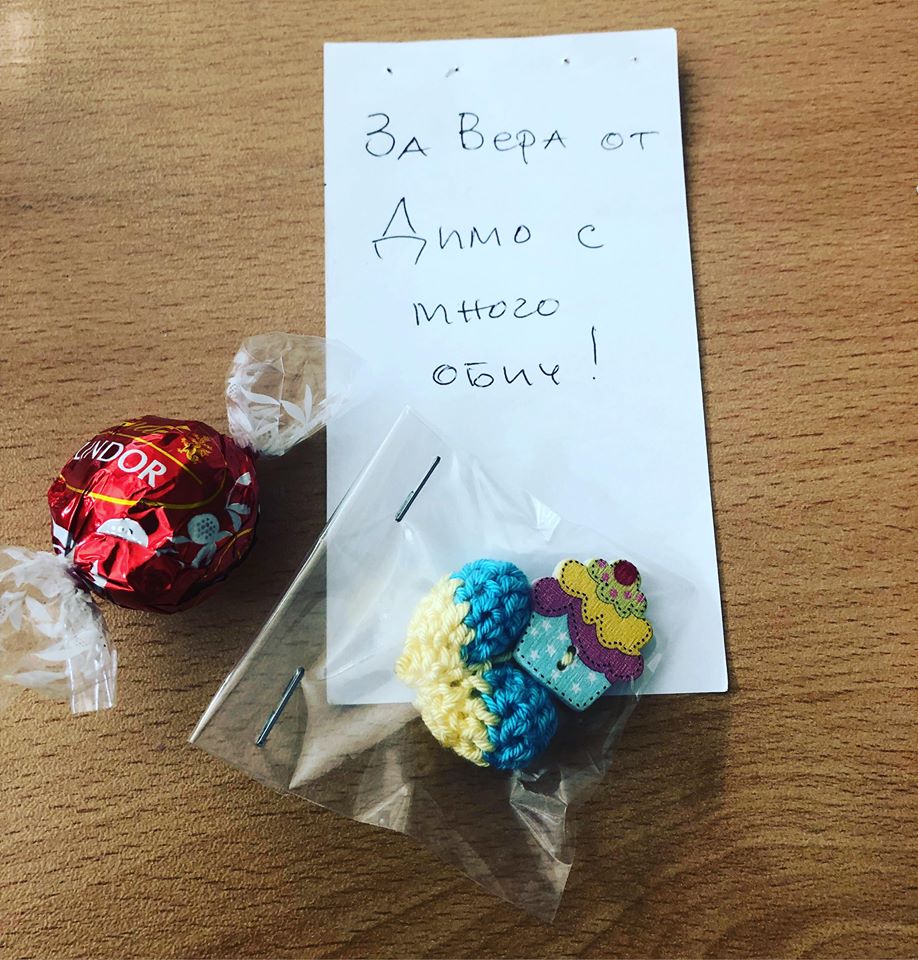 За Вера от
Димо с
много
обич!
Lindt
LINDOR